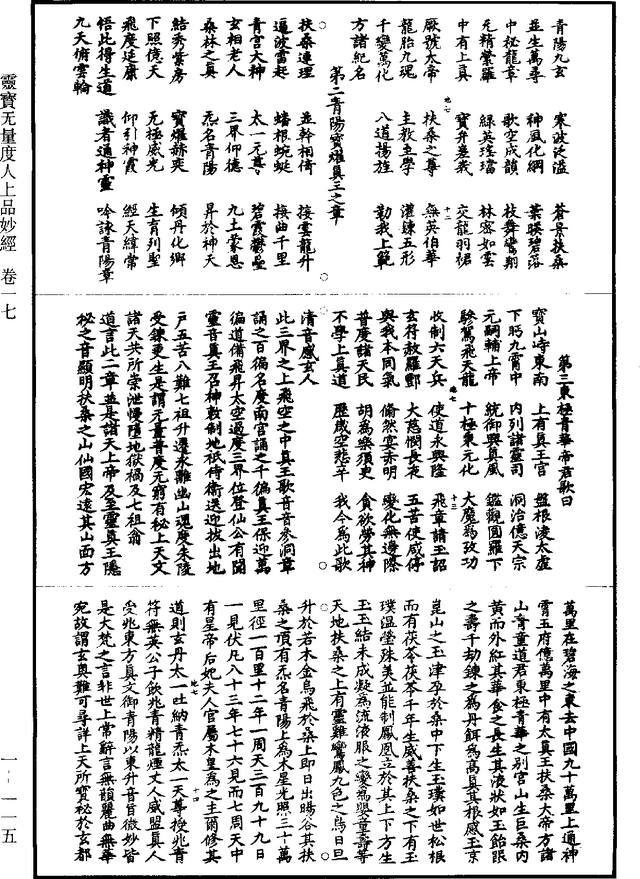 青陽九玄　寒波泛溢　蒼景扶桑
並生萬尋　神風化綱　葉暎碧落
中秘龍章　歌空成韻　枝舞鸞翔
元精縈羅　綠英瑤璫　林密如雲
中有上真　寶弁　交龍羽裙
厥號太帝　扶桑之尊　無英伯華
龍胎九瑰　主教主學　灌鍊五形
千變萬化　八道揚旌　勤我上範
方諸紀名
第二青陽寶燿真王之章
扶桑連理　並幹相倚　接雲龍升
逼波雷起　蟠根蜿蜒　接曲千里
青宮大神　太一元尊　碧霞鬱壘
玄相老人　三界仰德　九土蒙恩
桑林之真　炁名青陽　昇於神天
結秀蘂房　寶燿赫奕　傾丹化鄉
下照億天　无極威光　生育列聖
飛度延康　仰引神霞　經天緯常
悟此得生道　識者通神靈　吟詠青陽章
九天俯雲輪
第三東極青華帝君歌曰
寶山峙東南　上有真王宮　盤根凌太虛
下眄九霄中　內列諸靈司　洞治億天宗
元嗣輔上帝　統御興真風　鑑觀圓羅下
驂駕飛天龍　十極東元化　大魔為致功
收制六天兵　使道永興隆　飛章請玉詔
玄符敕羅酆　大慈憫長夜　五苦使咸停
與我本同氣　翛然宴赤明　變化無邊際
普度諸天民　胡為樂須臾　貪欲勞其神
不學上真道　歷歲空悲辛　我今為此歌
清音感玄人
此三界之上飛空之中真王歌音音參洞章
誦之百徧名度南宮誦之千徧真王保迎萬
徧道備飛昇太空過度三界位登仙公有聞
靈音真王召神敕制地祇侍衛送迎拔出地
戶五苦八難七祖升遷永離幽山魂度朱陵
受鍊更生是謂无量普度无窮有秘上天文
諸天共所崇泄慢墮地獄禍及七祖翁
道言此二章並是諸天上帝及至靈真王隱
秘之音顯明扶桑之山仙國宏遠其山面方
萬里在碧海之東去中國九十萬里上通神
霄玉府億萬里中有太真王扶桑大帝方諸
山青童道君東極青華之別宮山生巨桑內
黃而外紅其華食之長生其液狀如玉飴服
之壽千劫鍊之為丹餌為高真其根感玉京
崑山之玉津孕於桑中下生玉璞如世松根
而有茯苓茯苓千年生威喜扶桑之下有玉
璞溫瑩殊美並能制鳳凰立於其上下方生
玉玉結未成凝為流液服之變為嬰童壽等
天地扶桑之上有靈雞鸞鳳九色之烏日旦
升於若木金烏飛於桑上即日出暘谷其扶
桑之頂有炁名青陽上為木星光照三十萬
里徑一百里十二年一周天三百九十九日
一見伏凡八十三年七十六見而七周天中
有星帝后妃夫人官屬木皇為之主爾修其
道則玄丹太一吐納青炁太一天尊授兆青
符無英公子飲兆青精龍煙丈人威盟真人
受兆東方真文御青陽以東升音旨微妙皆
是大梵之言非世上常辭言無韻麗曲無華
宛故謂玄奧難可尋詳上天所寶秘於玄都
靈寶无量度人上品妙經　卷一七
一－一一五